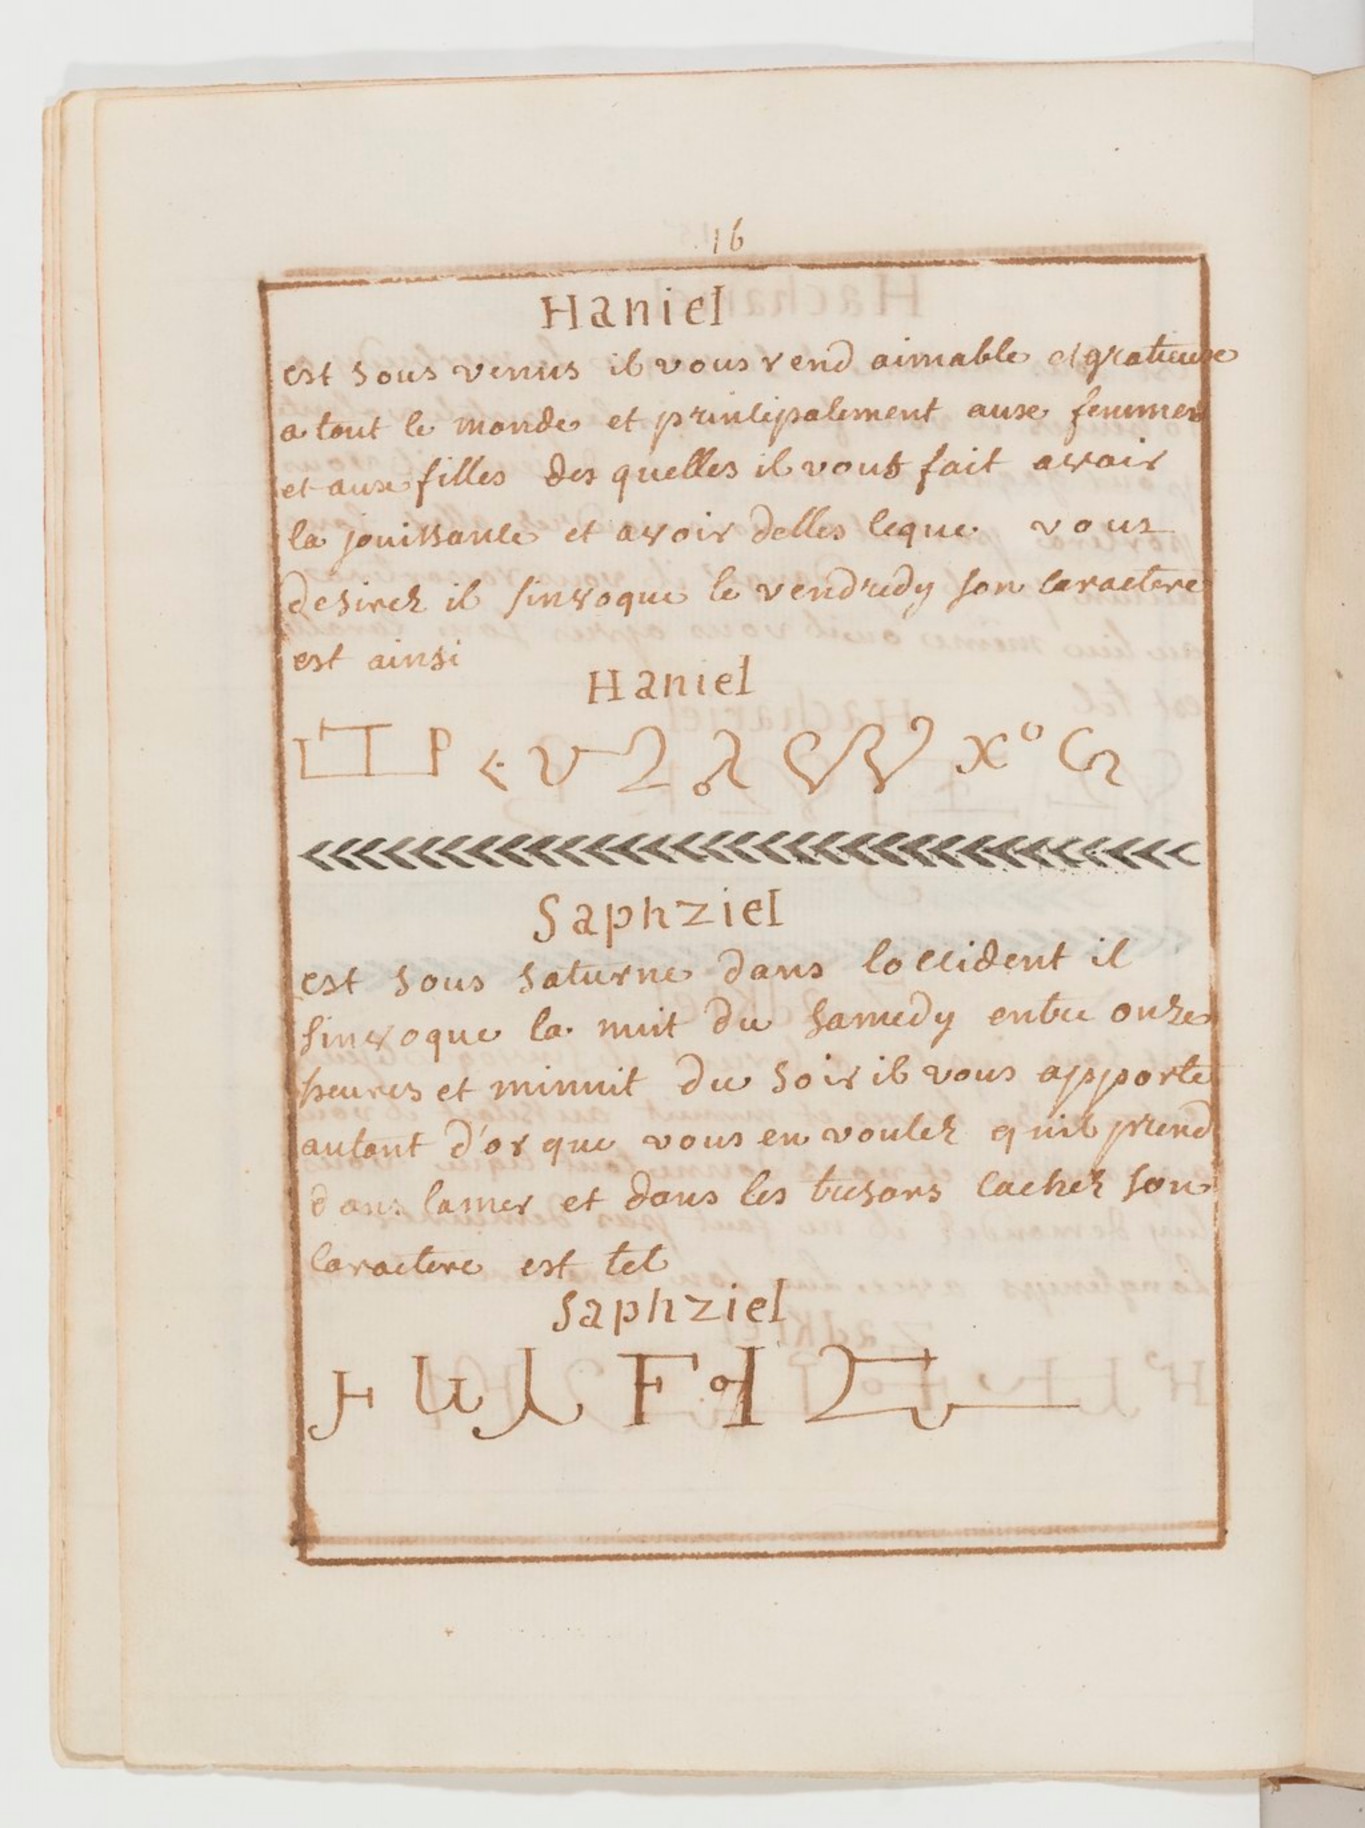 16
Haniel
est sous venus il vous rend aimable et gratieuxe
a tout le monde et principalement auxe femmes
et auxe filles des quelles il vous fait avoir
la jouissance et avoir delles leque vous
desirez il sinvoque le vendredy son caractere
est ainsi
Haniel
Saphziel
est sous saturne dans loccident il
sinvoque la nuit du samedy entre onze
heures et minuit du soir il vous apporte
autant d'or que vous en voulez quil prend
dans lamer et dans les tresors cachez son
caractere est tel
Saphziel